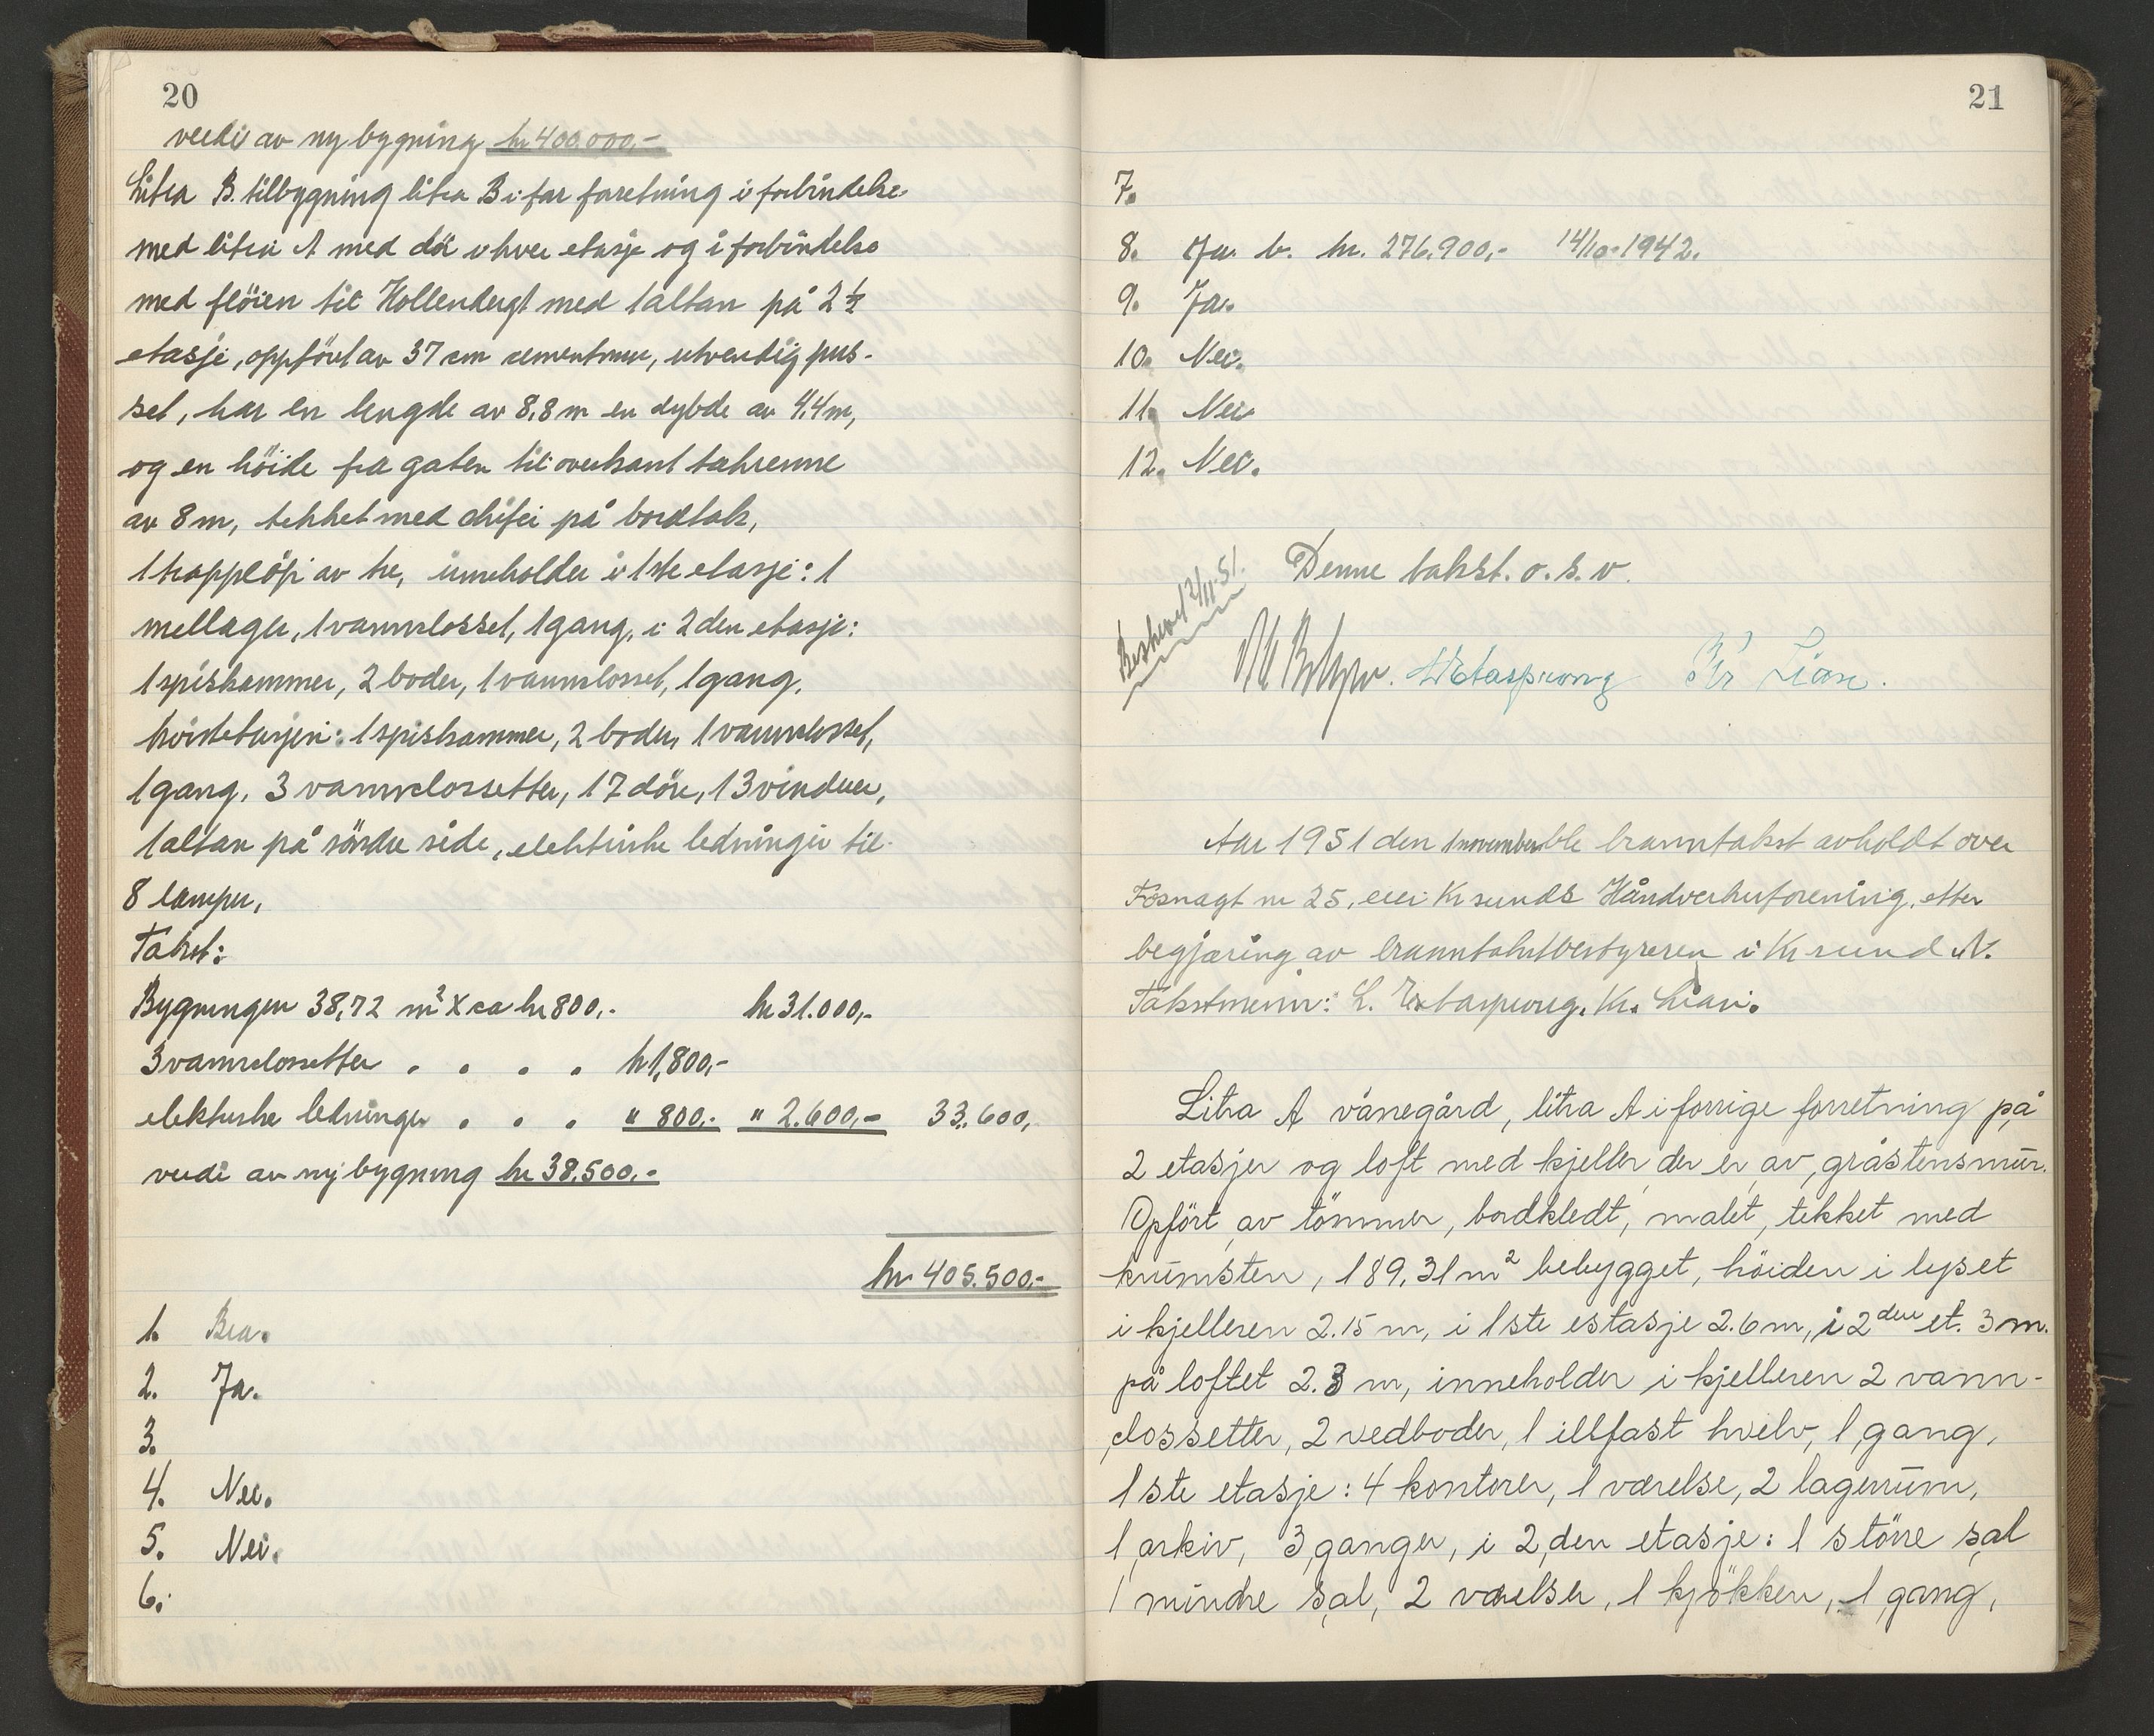 20
verdi av ny bygning kr 400.000,-
Litra B. tilbygning litra B i før forretning i forbindelse
med litra A med dör i hver etasje og i forbindelse
med flöien til Hollendergt med 1 altan på 2 ½
etasje, oppfört av 37 cm cementmur, utvendig pus-
set, har en lengde av 8,8 m en dybde av 4,4 m,
og en höide fra gaten til overkant takrenne
av 8 m, tekket med skifer på bordtak,
1 trappelöp av tre, inneholder i 1ste etasje: 1
mellager, 1 vannclosset, 1 gang, i 2den etasje:
1 spiskammer, 2 boder, 1 vannclosset, 1 gang,
kvistetasjen: 1 spiskammer, 2 boder, 1 vannclosset,
1 gang, 3 vannclossetter, 17 döre, 13 vinduer,
1 altan på söndre side, elektriske ledninger til
8 lamper,
Takst:
Bygningen 38,72 m² X ca kr 800,- kr 31.000,-
3 vannclossetter . . . . kr 1,800,-
elektriske ledninger . . . " 800,- " 2.600,- 33.600,
verdi av ny bygning kr 38.500,-
kr 405.500,-
1. Bra.
2. Ja.
3.
4. Nei.
5. Nei.
6.
21
7.
8. Ja b. kr. 276.900,- 14/10-1942.
9. Ja.
10. Nei.
11. Nei
12. Nei.
Denne takst. o. s. v.
Beskrevet 12/11-51.
Kr Lian.
Aar 1951 den 1 november ble branntakst avholdt over
Fosnagt nr 25, eier Kr sunds Håndverkerforening, etter
begjæring av branntakstbestyreren i Kr sund N.
Takstmenn: L. Kr. Lian.
Litra A vånegård, litra A i forrige forretning på
2 etasjer og loft med kjeller der er av gråstensmur.
Opfört av tömmer, bordkledt, malet, tekket med
krumsten, 189,31 m² bebygget, höiden i lyset
i kjelleren 2.15 m, i 1ste estasje 2.6 m, i 2den et. 3 m.
på loftet 2.3 m, inneholder i kjelleren 2 vann-
clossetter, 2 vedboder, 1 illfast hvelv, 1 gang,
1ste etasje: 4 kontorer, 1 værelse, 2 lagerrum,
1 arkiv, 3 ganger, i 2den etasje: 1 större sal
1 mindre sal, 2 værelser, 1 kjökken, 1 gang,